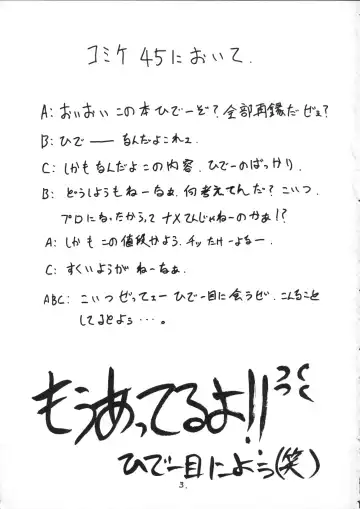 コミケ 45において.
A: おいおいこの本ひでーぞ？全部再録だぜぇ？
B: ひで――なんだよこれェ
C: しかもなんだよこの内容、ひでーのばっかり.
B: どうしようもねーなぁ.何考えてんだ？こいつ、
プロになったからってナメてんじゃねーのかぁ!?
A: しかもこの値段かよう.チッたけーよなー.
C: すくいようがねーなぁ.
ABC: こいつぜってェーひでー目に会うぜ.こんなこと
してるとよぅ….
もうあってるよ!!
ひでー目によぅ(笑)
3.